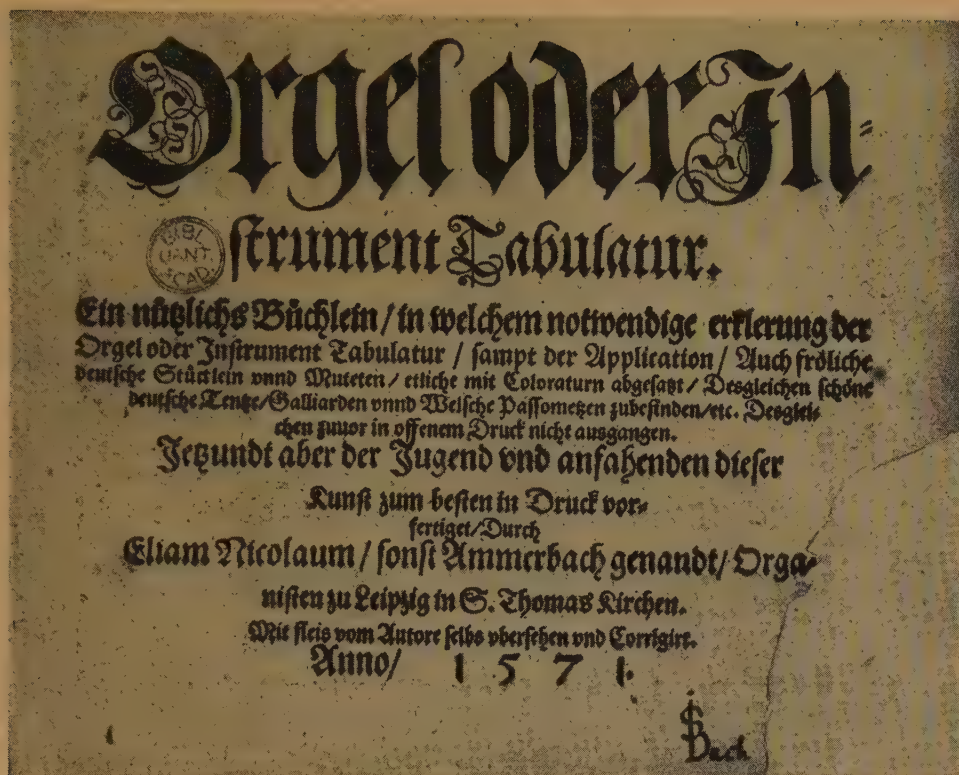 Orgel oder In-
strument Tabulatur.
BIBL
CANT
ACAD
Ein nützlichs Büchlein / in welchem notwendige erklerung der
Orgel oder Instrument Tabulatur / sampt der Application / Auch fröliche
deutsche Stücklein vnnd Muteten / etliche mit Coloraturn abgesatzt / Desgleichen schöne
deutsche Tentze / Galliarden vnnd Welsche Passometzen zubefinden / etc. Desglei-
chen zuuor in offenem Druck nicht ausgangen.
Jetzundt aber der Jugend vnd anfahenden dieser
Kunst zum besten in Druck vor-
fertiget / Durch
Eliam Nicolaum / sonst Ammerbach genandt / Orga-
nisten zu Leipzig in S. Thomas Kirchen.
Mit fleis vom Autore selbs vbersehen vnd Corrigirt.
Anno / 1571.
JS
Bach